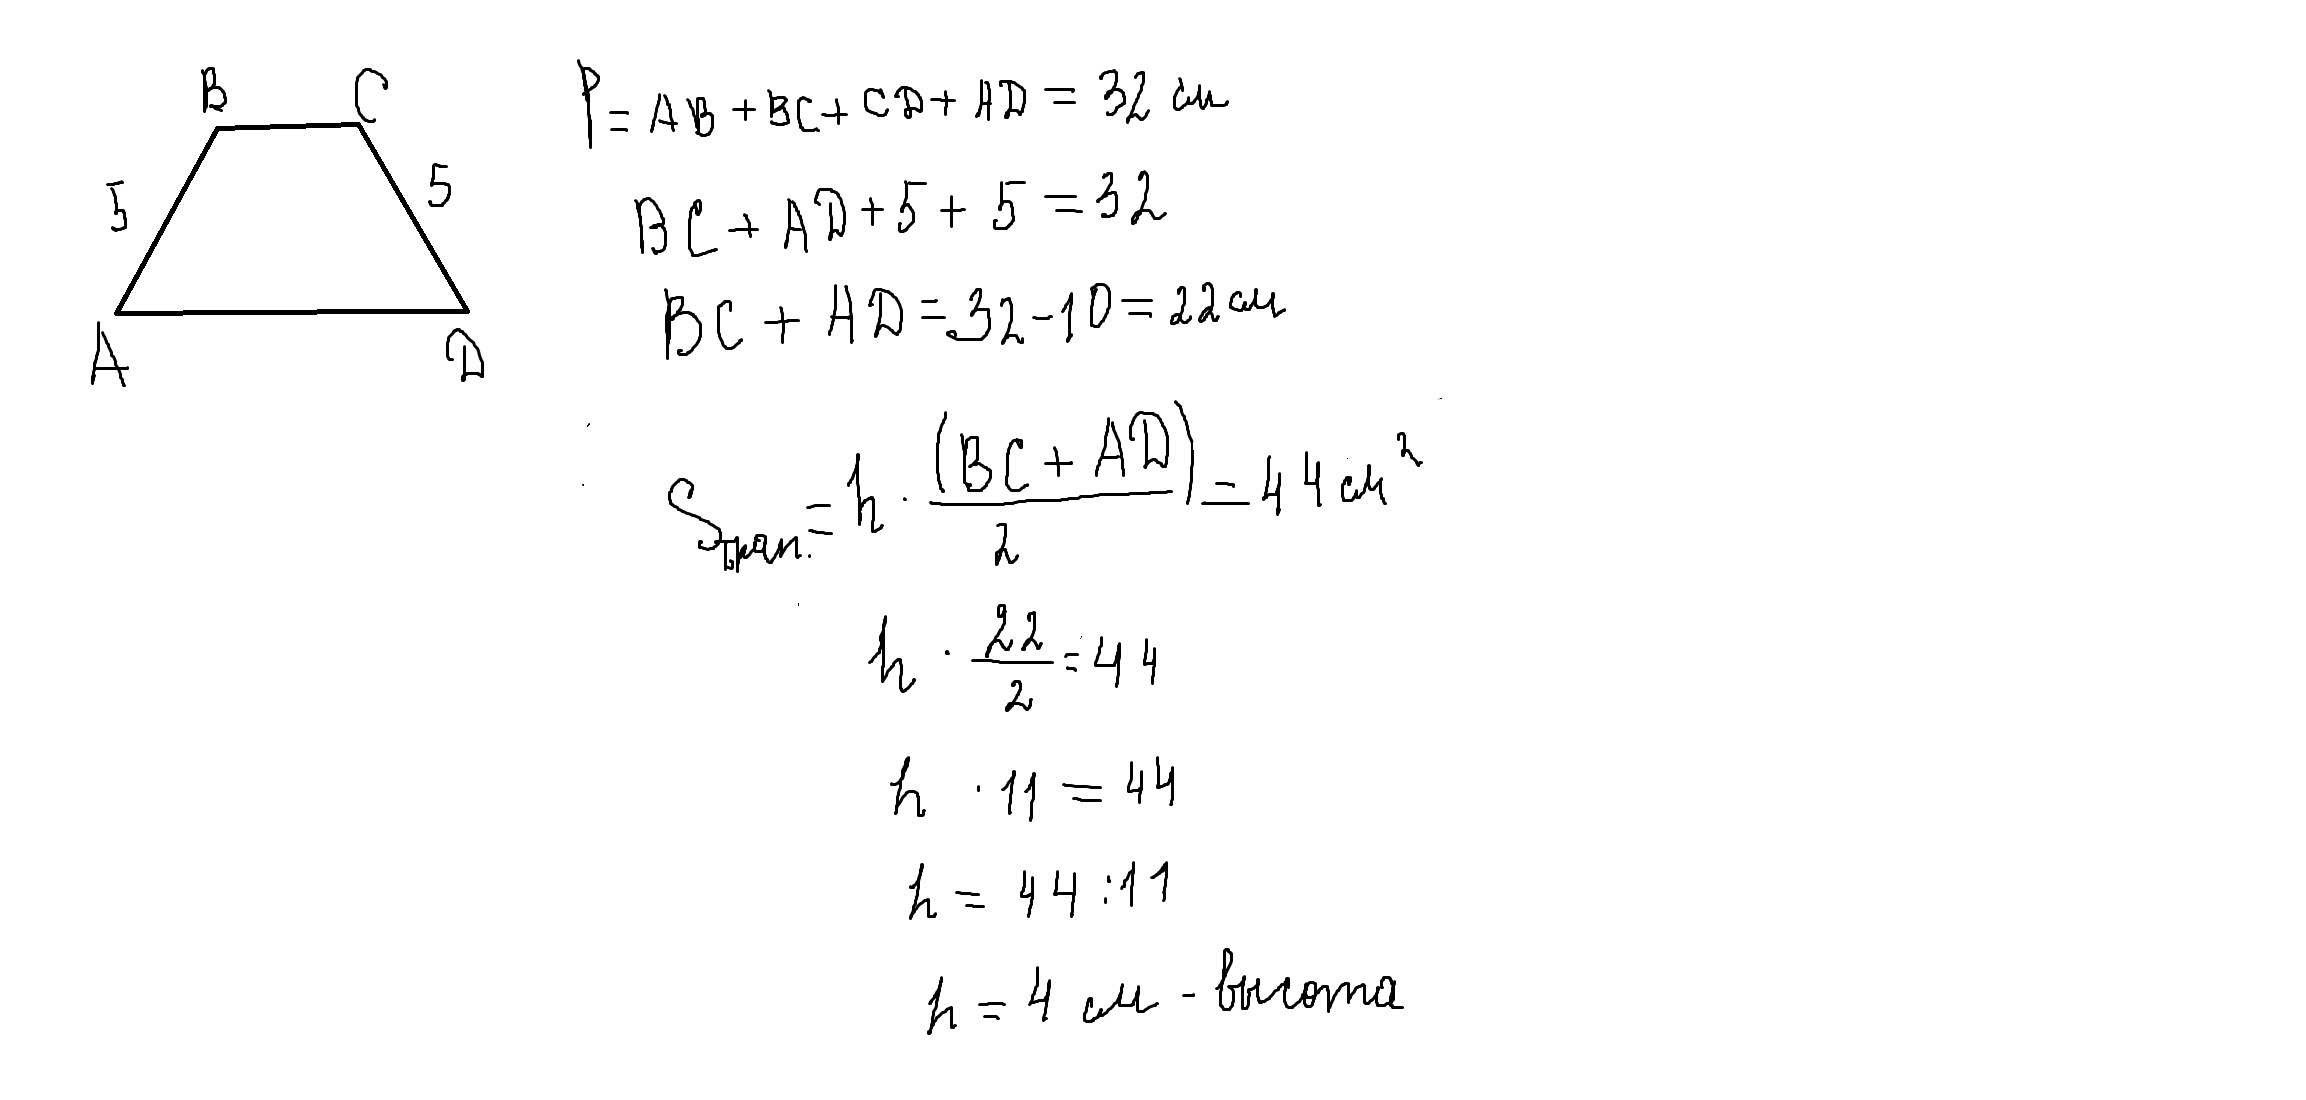 B C
5 5
A D
P = AB + BC + CD + AD = 32 см
BC + AD + 5 + 5 = 32
BC + AD = 32 - 10 = 22 см
Sтрап. = h · (BC + AD)/2 = 44 см²
h · 22/2 = 44
h · 11 = 44
h = 44 : 11
h = 4 см - высота